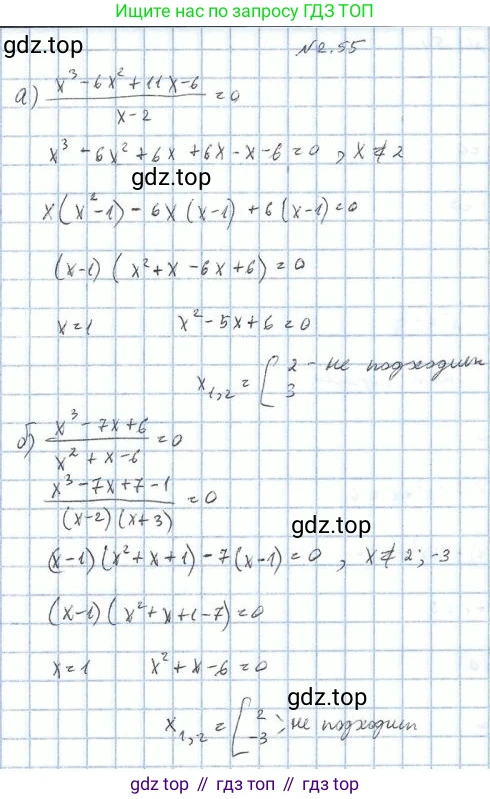 Ищите нас по запросу ГДЗ ТОП
gdz.top
№2.55
а) (x³-6x²+11x-6)/(x-2) = 0
x³-6x²+6x+6x-x-6=0, x≠2
gdz.top
x(x²-1)-6x(x-1)+6(x-1)=0
(x-1)(x²+x-6x+6)=0
x=1 x²-5x+6=0
x₁,₂=[2 - не подходит
3
б) (x³-7x+6)/(x²+x-6)=0
(x³-7x+7-1)/((x-2)(x+3))=0
gdz.top
(x-1)(x²+x+1)-7(x-1)=0, x≠2;-3
(x-1)(x²+x+1-7)=0
x=1 x²+x-6=0
gdz.top
x₁,₂=[2
-3 - не подходит
gdz.top // гдз.top // гдз топ